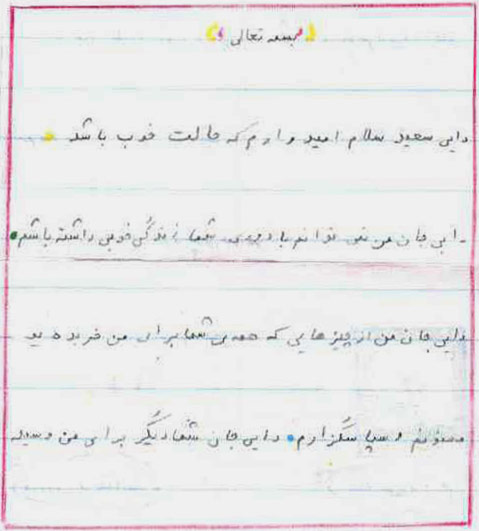 (بسمه تعالی)
دایی سعید سلام امید وارم که حالت خوب باشد.
دایی جان من نمی توانم با دوری شما زندگی خوبی داشته باشم.
دایی جان من از چیز هایی که همه ی شما برای من خریده ید
ممنونم و سپا سگزارم. دایی جان شما دیگر برای من وسیله